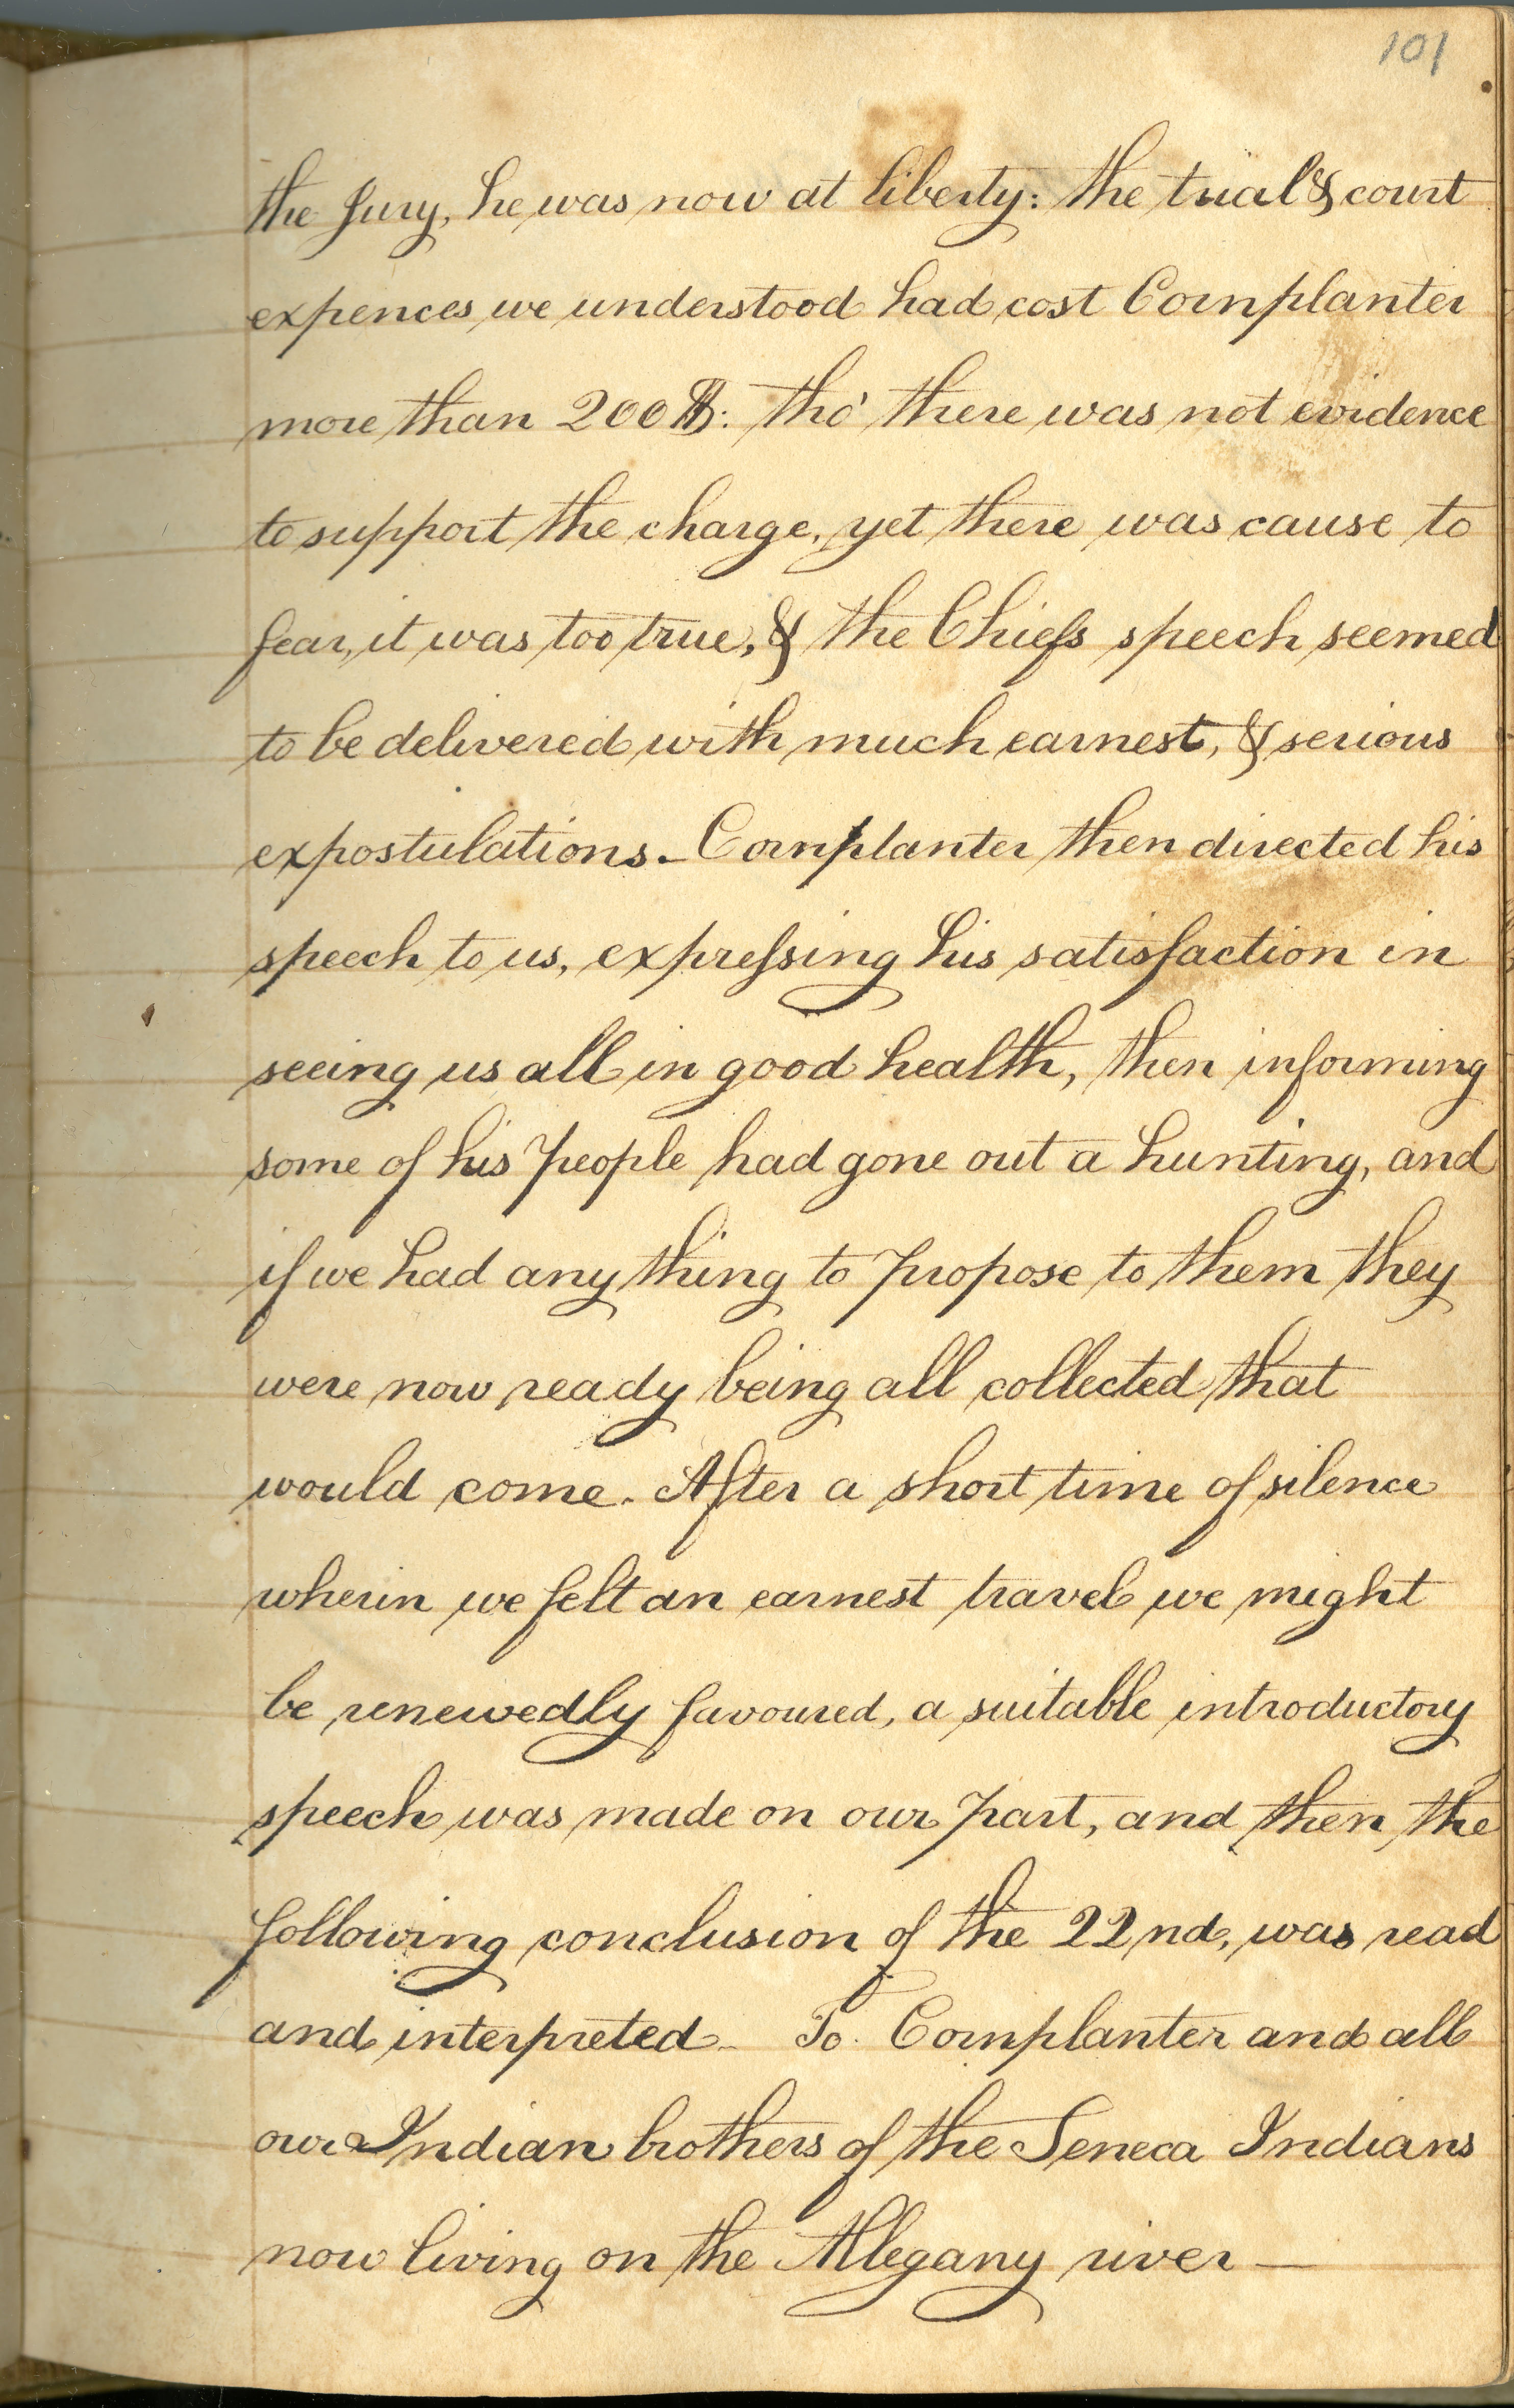 101
the Jury, he was now at liberty: the trial & court
expences we understood had cost Cornplanter
more than 200 $: tho' there was not evidence
to support the charge, yet there was cause to
fear, it was too true, & the Chiefs speech seemed
to be delivered with much earnest, & serious
expostulations – Cornplanter then directed his
speech to us, expreſsing his satisfaction in
seeing us all in good health, then informing
some of his People had gone out a hunting, and
if we had any thing to propose to them they
were now ready being all collected that
would come. After a short time of silence
wherin we felt an earnest travel we might
be renewedly favoured, a suitable introductory
speech was made on our part, and then the
following conclusion of the 22nd, was read
and interpreted – To. Cornplanter and all
our Indian brothers of the Seneca Indians
now living on the Allegany river —